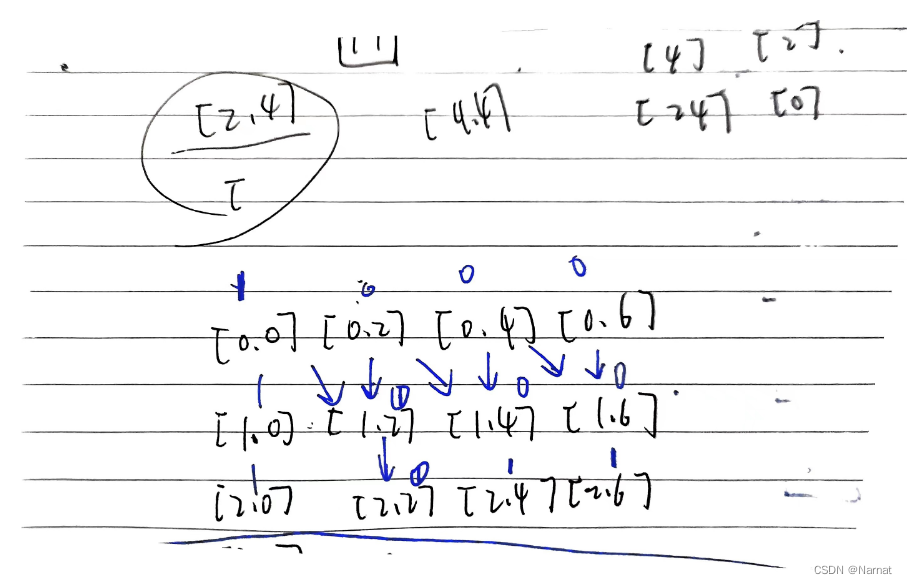 [4] [2].
[2.4] [4.4] [24] [0]
[
0 0 0
[0.0] [0.2] [0.4] [0.6]
1 1 0 0
[1.0] [1.2] [1.4] [1.6]
1 1 1 1
[2.0] [2.2] [2.4] [2.6]
CSDN @Narnat